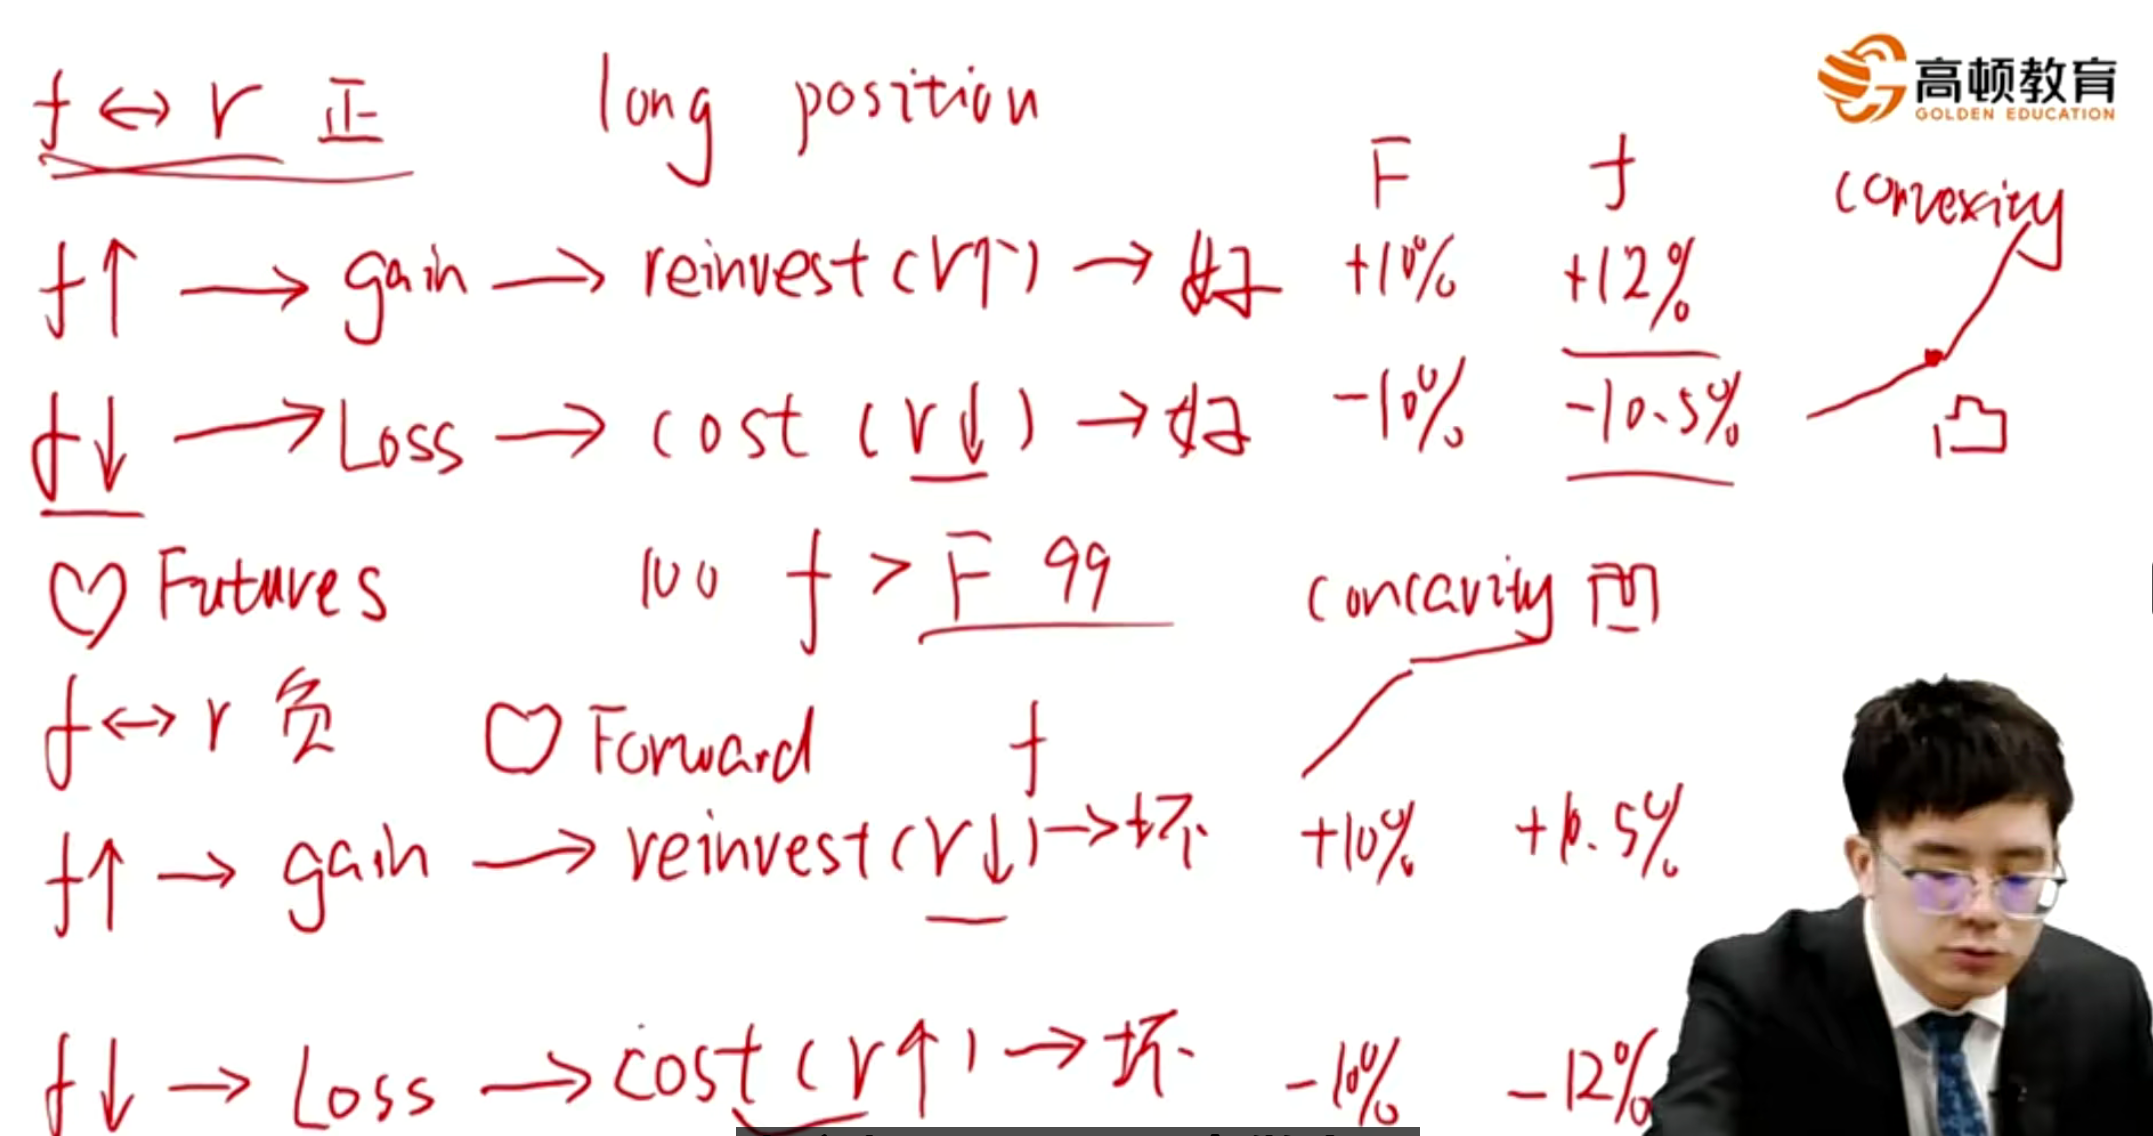 高顿教育
GOLDEN EDUCATION
f ↔ r 正 long position
F f convexity
f↑ → gain → reinvest (r↑) → 好 +10% +12%
f↓ → Loss → cost (r↓) → 好 -10% -10.5% 凸
♡ Futures 100 f > F 99 concavity 凹
f ↔ r 负 ♡ Forward f
f↑ → gain → reinvest (r↓) → 坏 +10% +10.5%
f↓ → Loss → cost (r↑) → 坏 -10% -12%